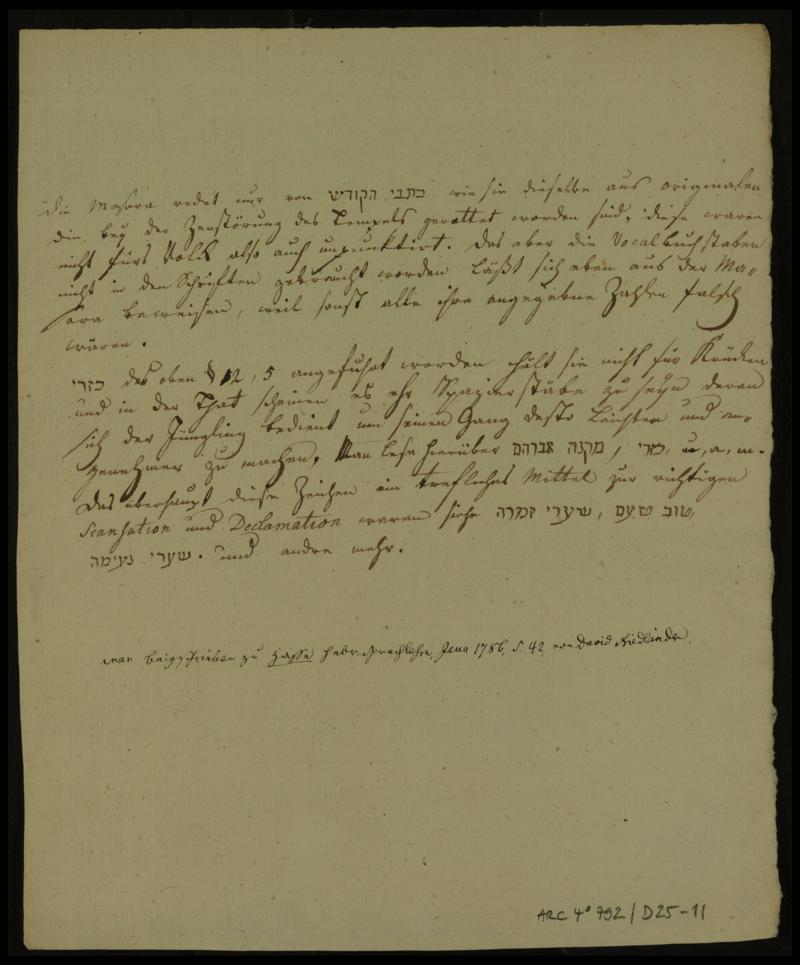 Die Masora redet nur von כתבי הקודש wie sie dieselbe aus originalen
die bey der Zerstörung des Tempels gerettet worden sind, diese waren
nicht fürs Volk also auch unpunktirt. Das aber die Vocalbuchstaben
nicht in den Schriften gebraucht worden läßt sich eben aus der Ma„
sora beweisen, weil sonst alle ihre angegebne Zahlen falsch
wären.
כוזרי des oben § 12, 5 angeführt worden hält sie nicht für Krücken
und in der That scheinen es ehr Spazierstäbe zu seyn deren
sich der Jüngling bedient um seinen Gang desto leichter und an„
genehmer zu machen. Man lese hierüber מקנה אברהם, כוזרי, u, a, m.
Das überhaupt diese Zeichen ein trefliches Mittel zur richtigen
Scansation und Declamation waren siehe שערי זמרה, טוב טעם,
שערי נעימה. und andre mehr.
war beigeschrieben zu Hasse hebr. Sprachlehre, Jena 1786, S. 42, von David Friedländer.
ARC 4° 792 / D25-11